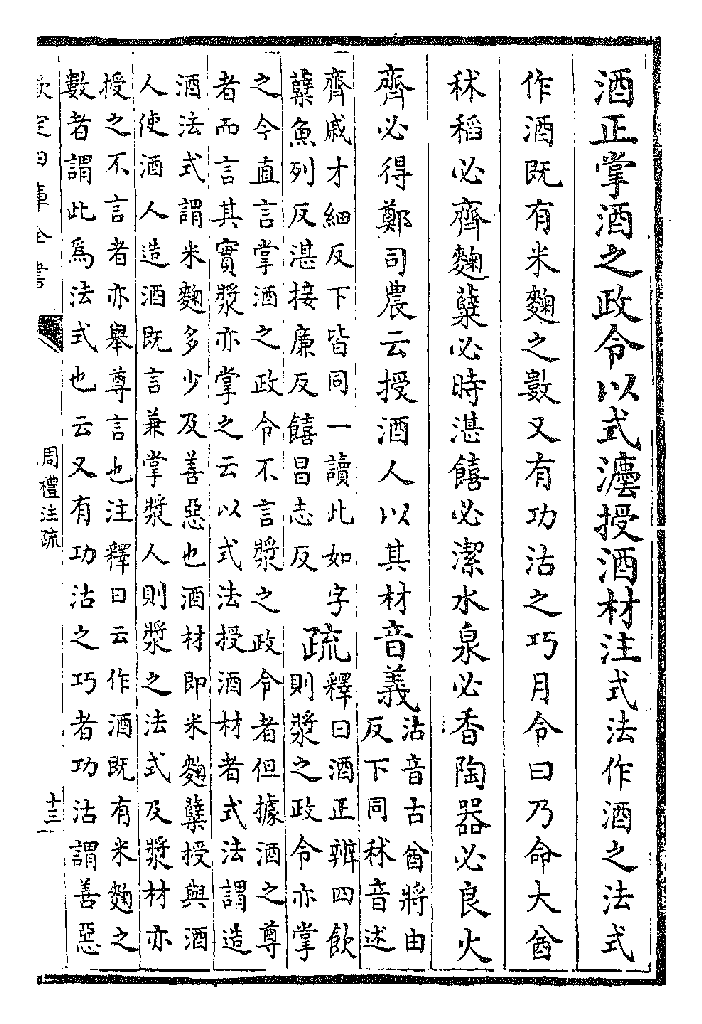 酒正掌酒之政令以式灋授酒材注式法作酒之法式
作酒既有米麴之數又有功沽之巧月令曰乃命大酋
秫稻必齊麴糵必時湛饎必潔水泉必香陶器必良火
齊必得鄭司農云授酒人以其材音義沽音古酋將由
反下同秫音述
齊戚才細反下皆同一讀此如字
糵魚列反湛接廉反饎昌志反
疏釋曰酒正辨四飲
則漿之政令亦掌
之今直言掌酒之政令不言漿之政令者但據酒之尊
者而言其實漿亦掌之云以式法授酒材者式法謂造
酒法式謂米麴多少及善惡也酒材即米麴糵授與酒
人使酒人造酒既言兼掌漿人則漿之法式及漿材亦
授之不言者亦舉尊言也注釋曰云作酒既有米麴之
數者謂此為法式也云又有功沽之巧者功沽謂善惡
欽定四庫全書
周禮注疏
十三